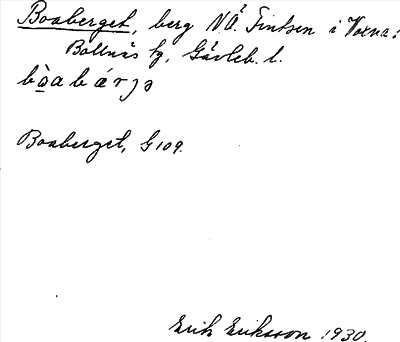 Boaberget, berg NÄ. Fintsen i Voxna:
Bollnäs tg, Gävleb. l.
bòabárjə
Boaberget, G 109.
Erik Eriksson 1930.